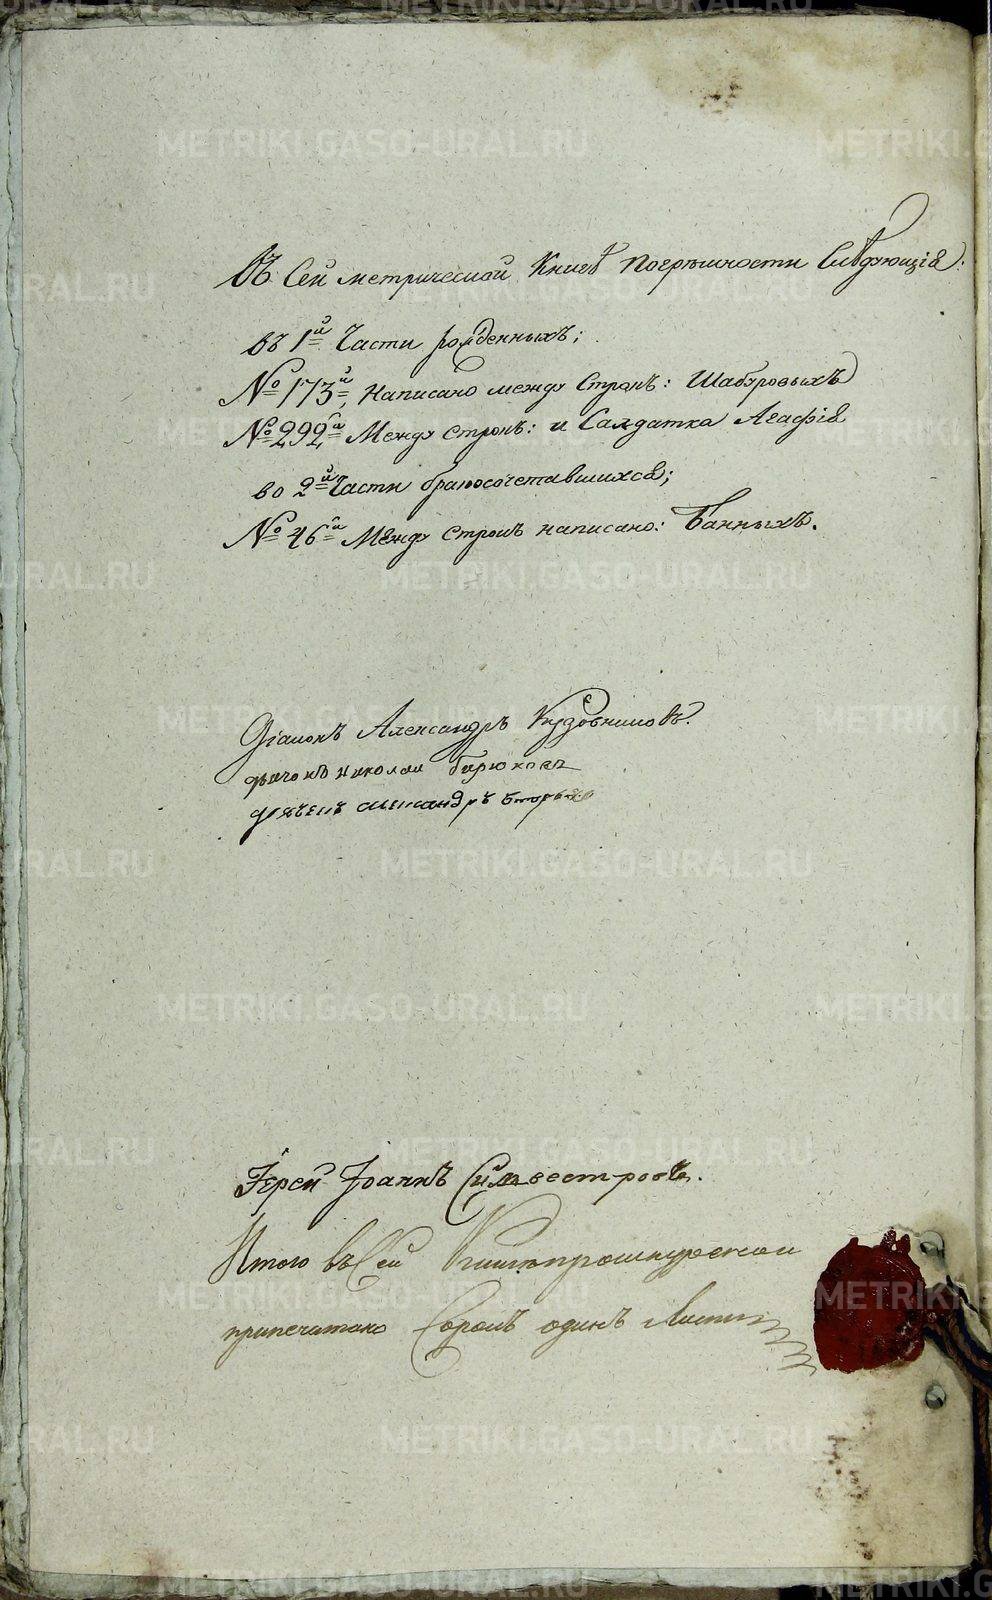 Въ Сей метрической Книгѣ Погрѣшности Слѣдующія:
въ 1й Части рожденныхъ;
№ 173й, Написано между Строкъ: Шабуровыхъ
№ 292й Между строкъ: и Салдатка Агафія
во 2й Части бракосочетавшихся;
№ 46й Между Строкъ написано: Банныхъ.
Діаконъ Александръ Кузовниковъ.
дьячокъ Николай Бирюковъ
дьячекъ Александръ
Іерей Іоаннъ Сильвестровъ.
Итого въ Сей Книге прошнуреной
припечатано Сорокъ одинъ Листъ
METRIKI.GASO-URAL.RU